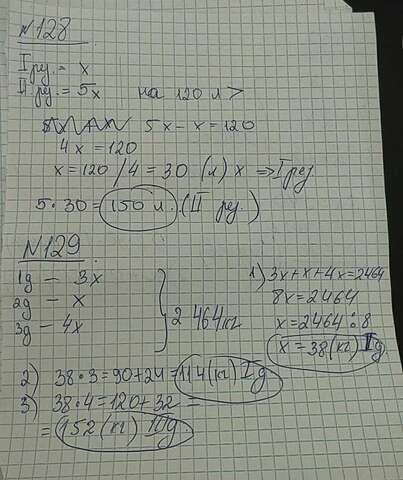 №128
I ру. = x
II ру. = 5x на 120 л >
5x - x = 120
4x = 120
x = 120 / 4 = 30 (л) x => I рез
5 · 30 = 150 л. (II ру.)
№129
1д - 3x
2д - x
3д - 4x
2 464кг
1) 3x + x + 4x = 2464
8x = 2464
x = 2464 : 8
x = 38 (кг) I д.
2) 38 · 3 = 90 + 24 = 114 (кг) I д
3) 38 · 4 = 120 + 32 =
= 152 (кг) III д.